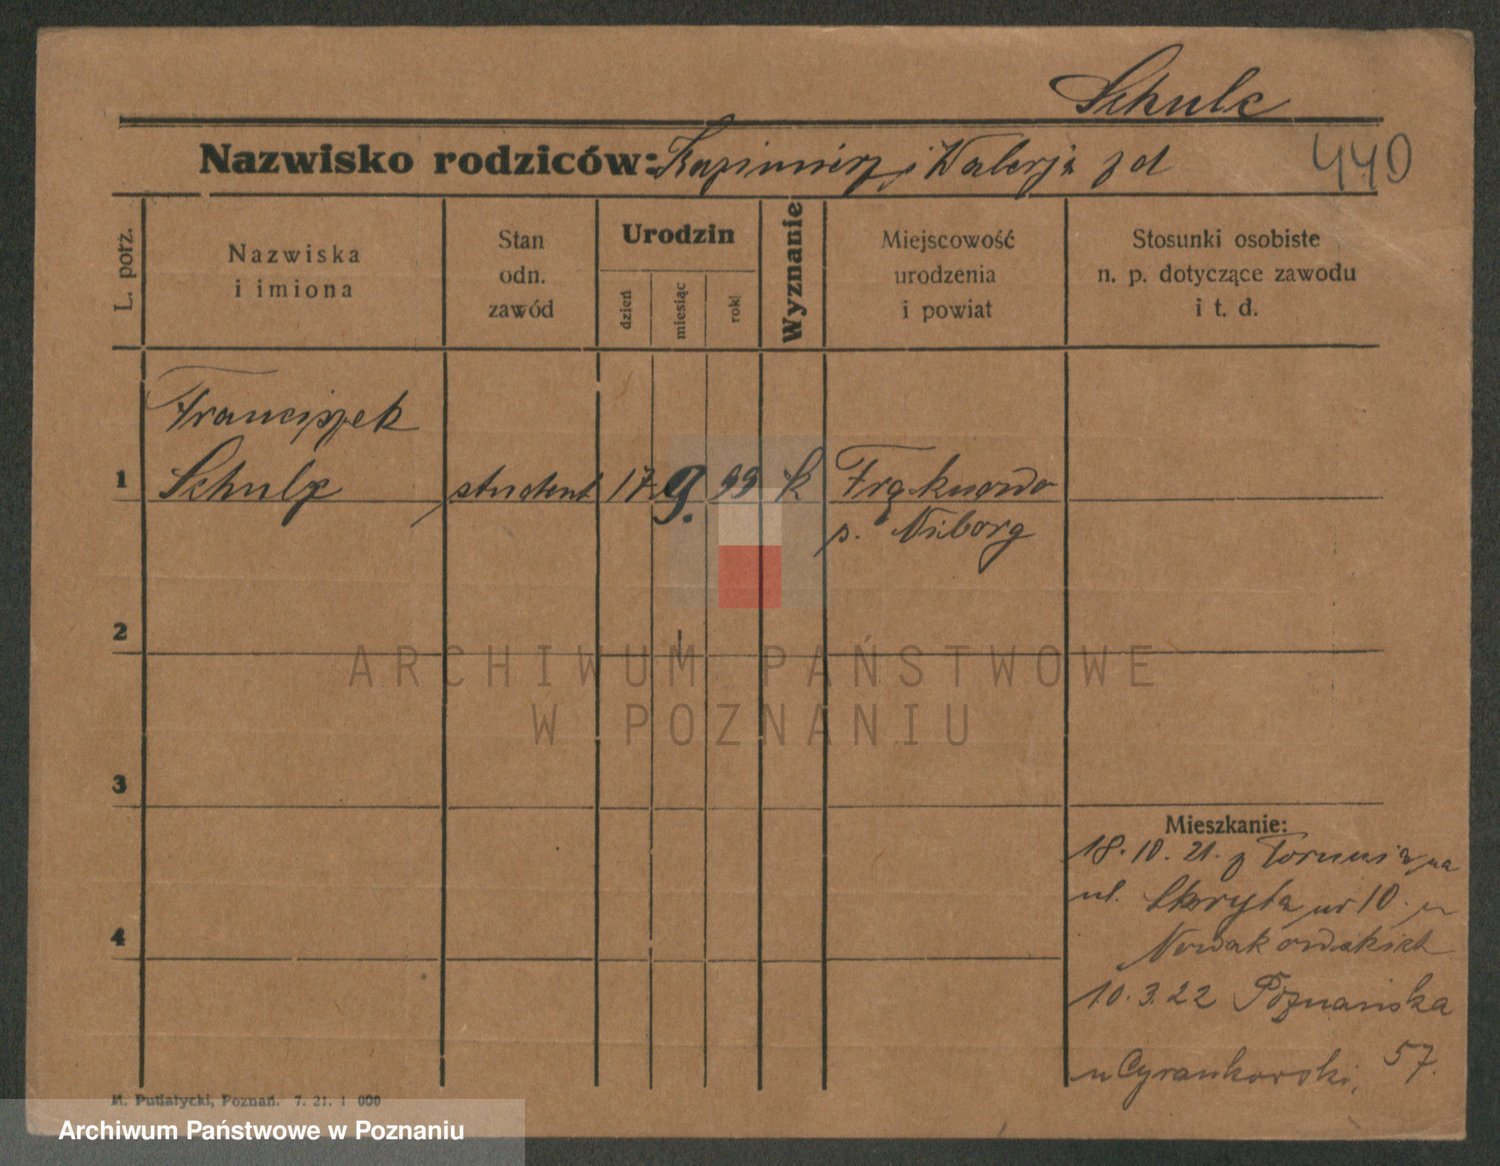 Schulz
Nazwisko rodziców: Kazimierz i Walerja z d
440
L. porz.
Nazwiska
i imiona
Stan
odn.
zawód
Urodzin
dzień
miesiąc
rok
Wyznanie
Miejscowość
urodzenia
i powiat
Stosunki osobiste
n. p. dotyczące zawodu
i t. d.
Franciszek
1 Schulz student 17 9. 99 k Frąknowo
p. Niborg
2
ARCHIWUM PAŃSTWOWE
W POZNANIU
3
Mieszkanie:
18.10.21. z Torunia na
ul. Skryta nr 10. u
4
Nowakowskich
10.3.22 Poznańska
57.
u Cyrankowski,
M. Putiatycki, Poznań. 7. 21. 1 000
Archiwum Państwowe w Poznaniu